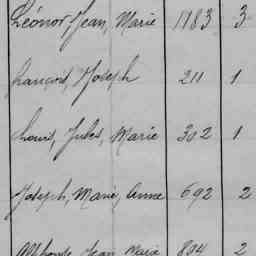 Léonor, Jean, Marie 1183 3
François, Joseph 211 1
Louis, Jules, Marie 302 1
Joseph, Marie, Anne 692 2
Alphonse, Jean Marie 804 2